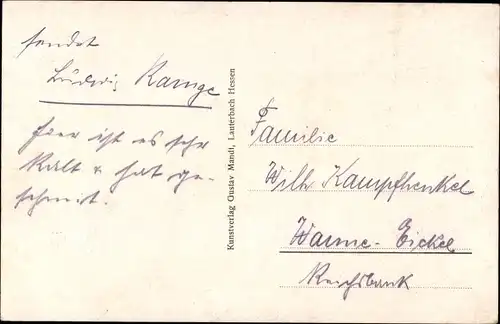 sendet
Ludwig Ramge
hier ist es sehr
kalt + hat ge-
schneit.
Kunstverlag Gustav Mandt, Lauterbach Hessen
Familie
Wilh. Kampfhenkel
Wanne-Eickel
Reichsbank